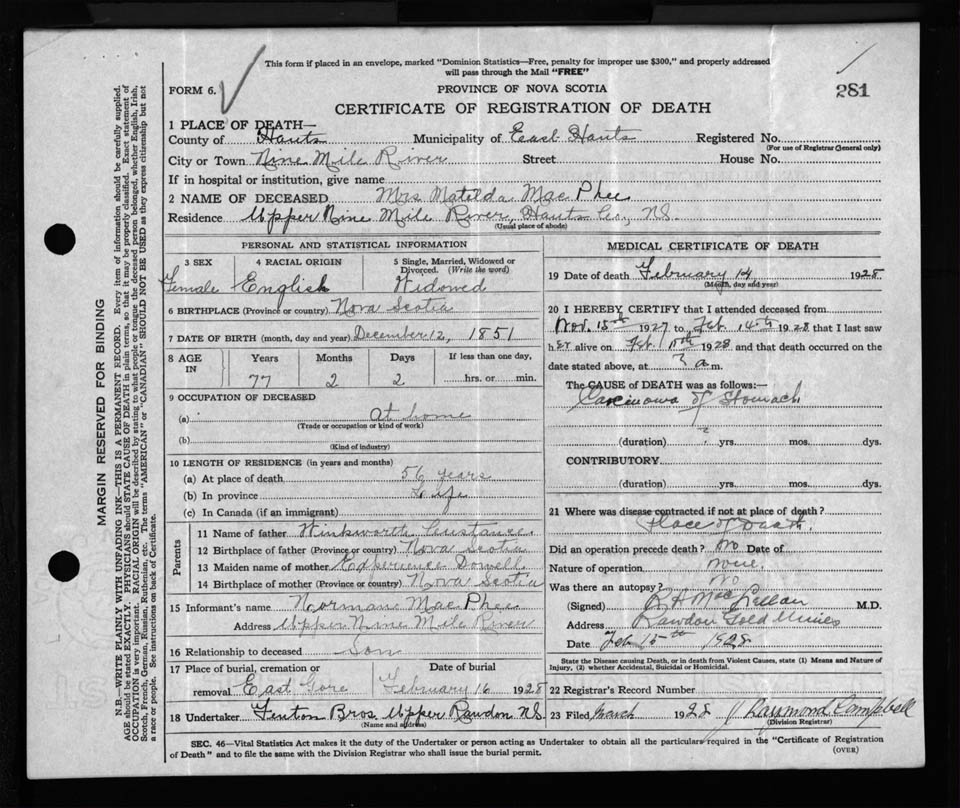 This form if placed in an envelope, marked "Dominion Statistics—Free, penalty for improper use $300," and properly addressed
will pass through the Mail "FREE"
FORM 6.
PROVINCE OF NOVA SCOTIA
281
CERTIFICATE OF REGISTRATION OF DEATH
1 PLACE OF DEATH—
County of Hants Municipality of East Hants Registered No.
(For use of Registrar General only)
City or Town Nine Mile River Street House No.
If in hospital or institution, give name
2 NAME OF DECEASED Mrs Matilda Mac Phee
Residence Upper Nine Mile River, Hants Co., N.S.
(Usual place of abode)
PERSONAL AND STATISTICAL INFORMATION
3 SEX 4 RACIAL ORIGIN 5 Single, Married, Widowed or
Divorced. (Write the word)
Female English Widowed
6 BIRTHPLACE (Province or country) Nova Scotia
7 DATE OF BIRTH (month, day and year) December 12, 1851
8 AGE IN Years Months Days If less than one day,
77 2 2 hrs. or min.
9 OCCUPATION OF DECEASED
(a) At home
(Trade or occupation or kind of work)
(b)
(Kind of industry)
10 LENGTH OF RESIDENCE (in years and months)
(a) At place of death 56 years
(b) In province Life
(c) In Canada (if an immigrant)
Parents
11 Name of father Winkworth Custance
12 Birthplace of father (Province or country) Nova Scotia
13 Maiden name of mother Experience Dowell
14 Birthplace of mother (Province or country) Nova Scotia
15 Informant's name Norman MacPhee
Address Upper Nine Mile River
16 Relationship to deceased Son
17 Place of burial, cremation or Date of burial
removal East Gore February 16 1928
18 Undertaker Fenton Bros. Upper Rawdon N.S.
(Name and address)
MEDICAL CERTIFICATE OF DEATH
19 Date of death February 14 1928
(Month, day and year)
20 I HEREBY CERTIFY that I attended deceased from
Nov. 15th 1927 to Feb. 14th 1928 that I last saw
her alive on Feb 1928 and that death occurred on
date stated above, at a m.
The CAUSE OF DEATH was as follows:—
Carcinoma of Stomach
(duration) yrs. mos. dys.
CONTRIBUTORY
(duration) yrs. mos. dys.
21 Where was disease contracted if not at place of death?
Place of Death.
Did an operation precede death? No Date of
Nature of operation None.
Was there an autopsy? No
(Signed) R H MacLellan M.D.
Address Rawdon Gold Mines
Date Feb 15th 1928
State the Disease causing Death, or in death from Violent Causes, state (1) Means and Nature of
Injury, (2) whether Accidental, Suicidal or Homicidal.
22 Registrar's Record Number
23 Filed March 1928 J Raymond Campbell
(Division Registrar)
SEC. 46—Vital Statistics Act makes it the duty of the Undertaker or person acting as Undertaker to obtain all the particulars required in the "Certificate of Registration
of Death" and to file the same with the Division Registrar who shall issue the burial permit.
(OVER)
MARGIN RESERVED FOR BINDING
N.B.—WRITE PLAINLY WITH UNFADING INK—THIS IS A PERMANENT RECORD. Every item of information should be carefully supplied.
AGE should be stated EXACTLY. PHYSICIANS should STATE CAUSE OF DEATH in plain terms, so that it may be properly classified. Exact statement of
OCCUPATION is very important. RACIAL ORIGIN will be described by stating to what people or tongue the deceased person belonged, whether English, Irish,
Scotch, French, German, Russian, Ruthenian, etc. The terms "AMERICAN" or "CANADIAN" SHOULD NOT BE USED as they express citizenship but not
a race or people. See instructions on back of Certificate.